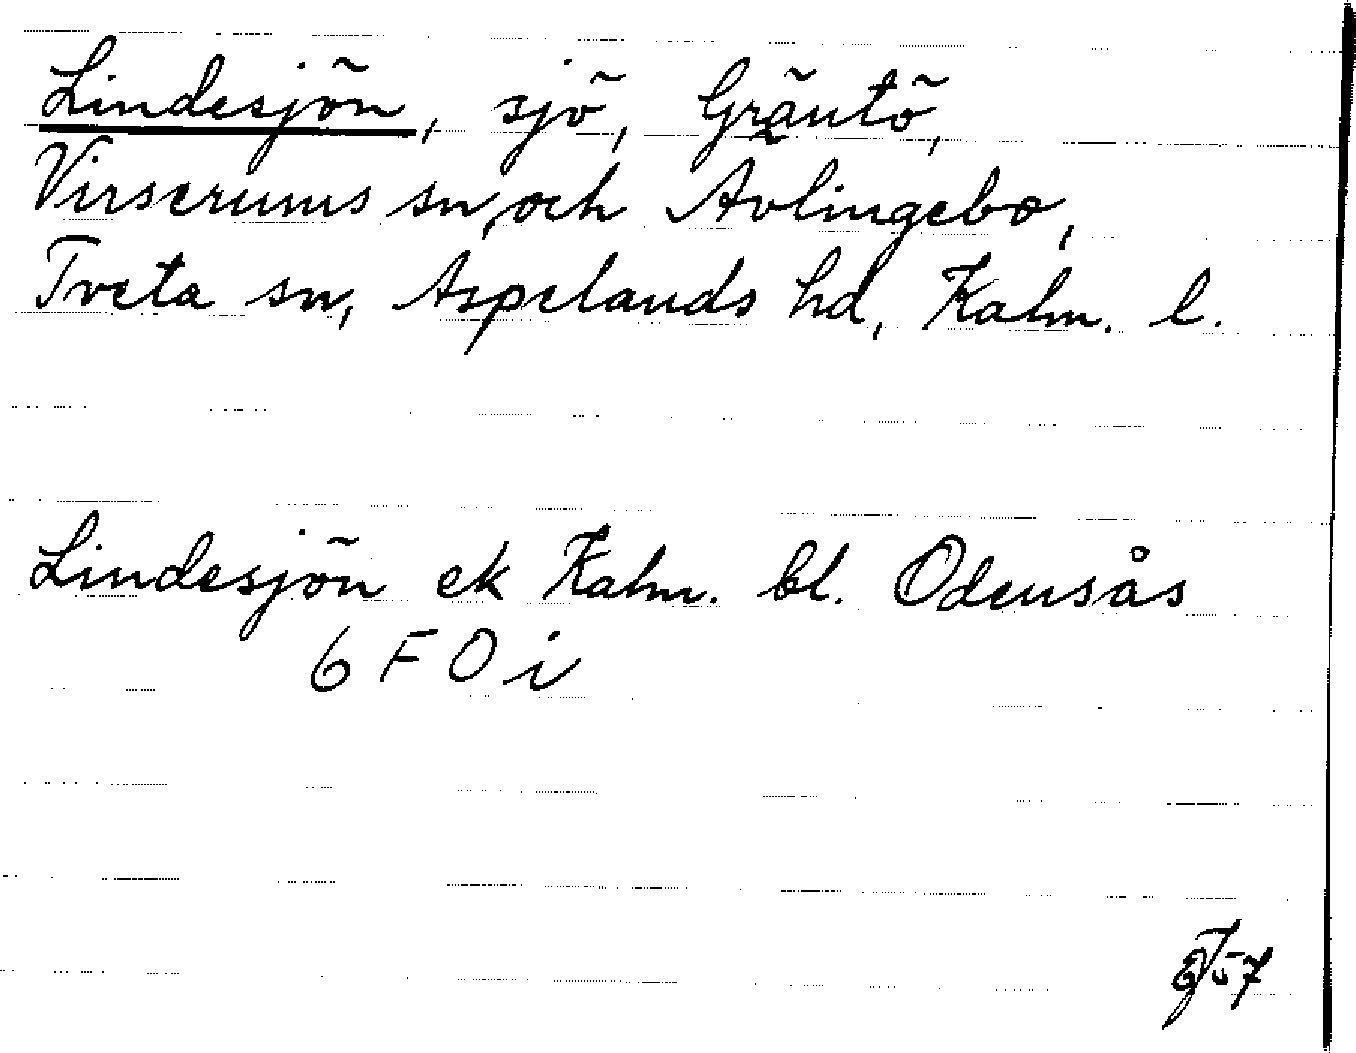 Lindesjön, sjö, Gräntö,
Virserums sn, och Avlingebo,
Tveta sn, Aspelands hd, Kalm. l.
Lindesjön ek Kalm. bl. Odensås
6 F 0 i
57